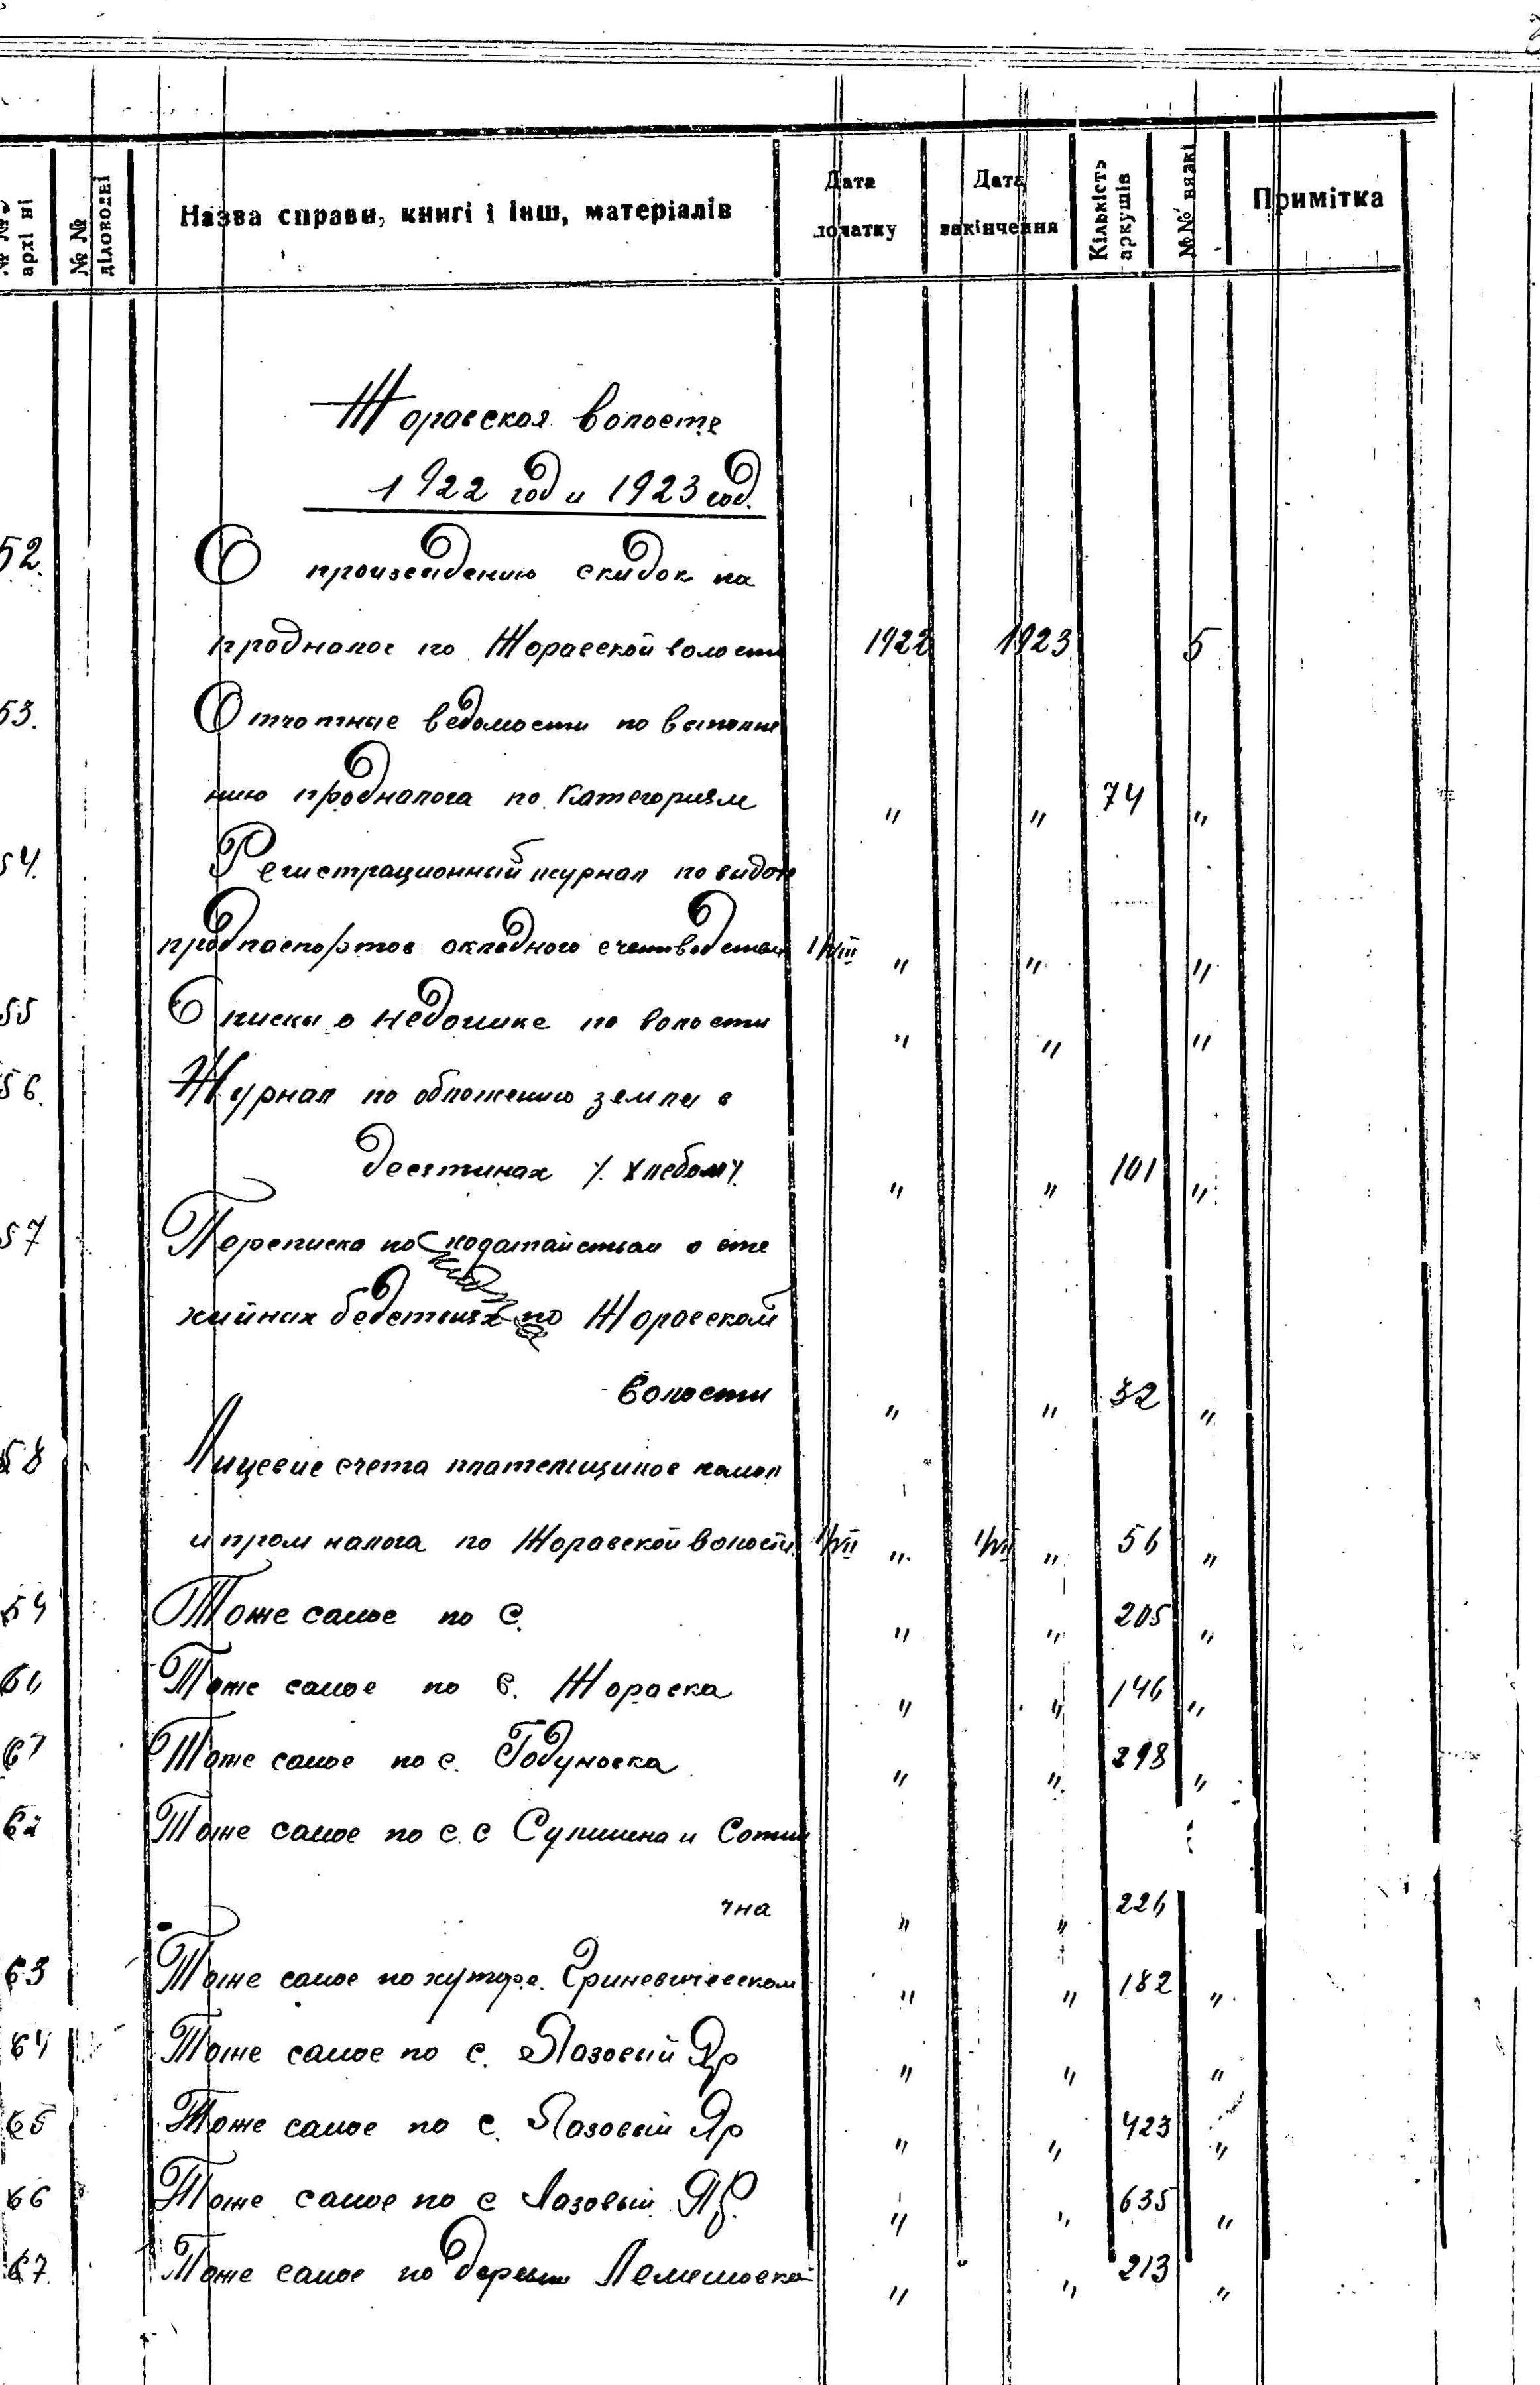 № №
архі ні
№ №
діловодні
Назва справи, книгі і інш, матеріалів
Дата
початку
Дата
закінчення
Кількість
аркушів
№№ вязкі
Примітка
Жоравская волость
1922 год и 1923 год.
52. О произведению скидок на
продналог по Жоравской волости 1922 1923 5
53. Отчотные ведомости по выполне
нию продналога по категориям " " 74 "
54. Регистрационный журнал по видом
продпаспортов окладного счетоводства 1/VIII " " "
55 Списки о недоимке по волости " " "
56. Журнал по обложению земли в
десятинах /. хлебом /. " " 101 "
57 Переписка по ходатайствам о сти
хийных бедствиях по Жоровской
волости " " 32 "
58 Лицевие счета плательщиков
и пром налога по Жоравской волости 1/VII " 1/VII " 56 "
59 Тоже самое по С. " " 205 "
60 Тоже самое по с. Жоравка " " 146 "
61 Тоже самое по с. Годуновка " " 298 "
62 Тоже самое по с.с Сулимена и Сотни
чна " " 226
63 Тоже самое по хуторе. Гриневичевском " " 182 "
64 Тоже самое по с. Лазовый Яр " " "
65 Тоже самое по с. Лозовый Яр " " 423 "
66 Тоже самое по с Лазовый Яр. " " 635 "
67. Тоже самое по деревни Лемешовка " " 213 "